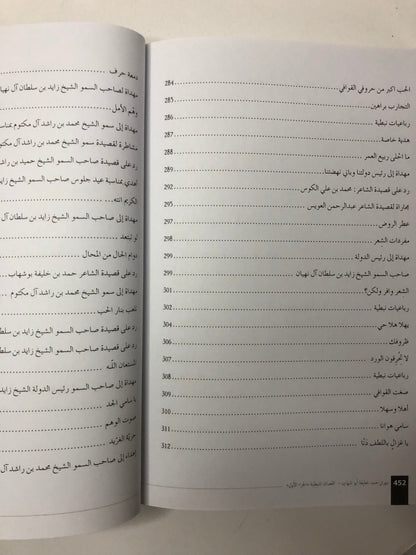 الحب اكبر من حروفي القوافي 284
التجارب براهين 285
رباعيات نبطية 287
هدية خاصة 289
ما احلى ربيع العمر
مهداة إلى رئيس دولتنا وباني نهضتنا
رد على قصيدة الشاعر: محمد بن علي الكوس 292
مجاراة لقصيدة الشاعر عبدالرحمن العويس
عطر الروض 295
مفردات الشعر 297
مهداة إلى رئيس الدولة 299
صاحب السمو الشيخ زايد بن سلطان آل نهيان 299
الشعر وافر ولكن؟ 301
رباعيات نبطية 302
يهلا هلا حي 304
ظروفك 306
لا تحرقون الورد 307
رباعيات نبطية 308
صغت القوافي 309
أهلا وسهلا 310
سامي هوانا 311
يا غزال باللطف دنّا 312
452
دمعة حرف
مهداة لصاحب السمو الشيخ زايد بن سلطان آل نهيان
وهم الأمل
مهداة إلى سمو الشيخ محمد بن راشد آل مكتوم بمناسبة
مشاطرة لقصيدة سمو الشيخ محمد بن راشد آل مكتوم
رد على قصيدة صاحب السمو الشيخ حميد بن راشد
بمناسبة عيد جلوس صاحب السمو الشيخ زايد
الكريم انته
مهداة إلى صاحب السمو الشيخ زايد بن سلطان آل
لو تبتعد
دوام الحال من المحال
رد على قصيدة الشاعر حمد بن خليفة بوشهاب
مهداة إلى سمو الشيخ محمد بن راشد آل مكتوم
تلعب بنار الحب
رد على قصيدة صاحب السمو الشيخ زايد بن سلطان
رد على قصيدة صاحب السمو الشيخ زايد بن سلطان
المستعان الله
مهداة إلى صاحب السمو رئيس الدولة الشيخ زايد
يا سامي المجد
صوت الوهم
إهداء إلى صاحب السمو الشيخ محمد بن راشد آل